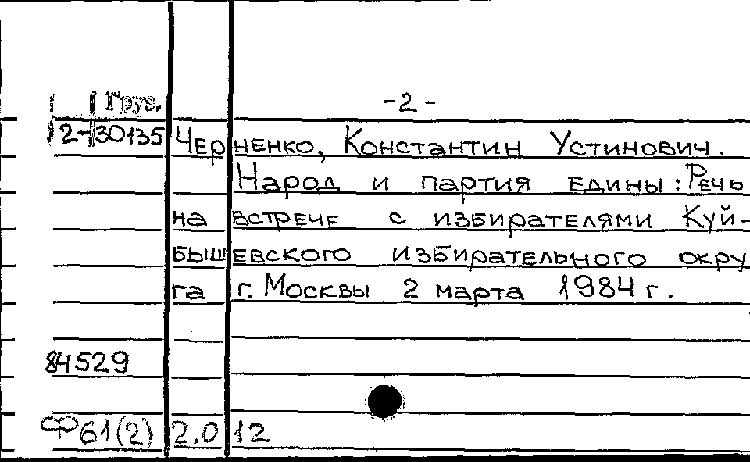 -2-
Груз.
2-30135 Черненко, Константин Устинович.
Народ и партия едины: Речь
на встрече с избирателями Куй-
бышевского избирательного окру
га г. Москвы 2 марта 1984 г.
84529
Ф61(2) 2.0 12